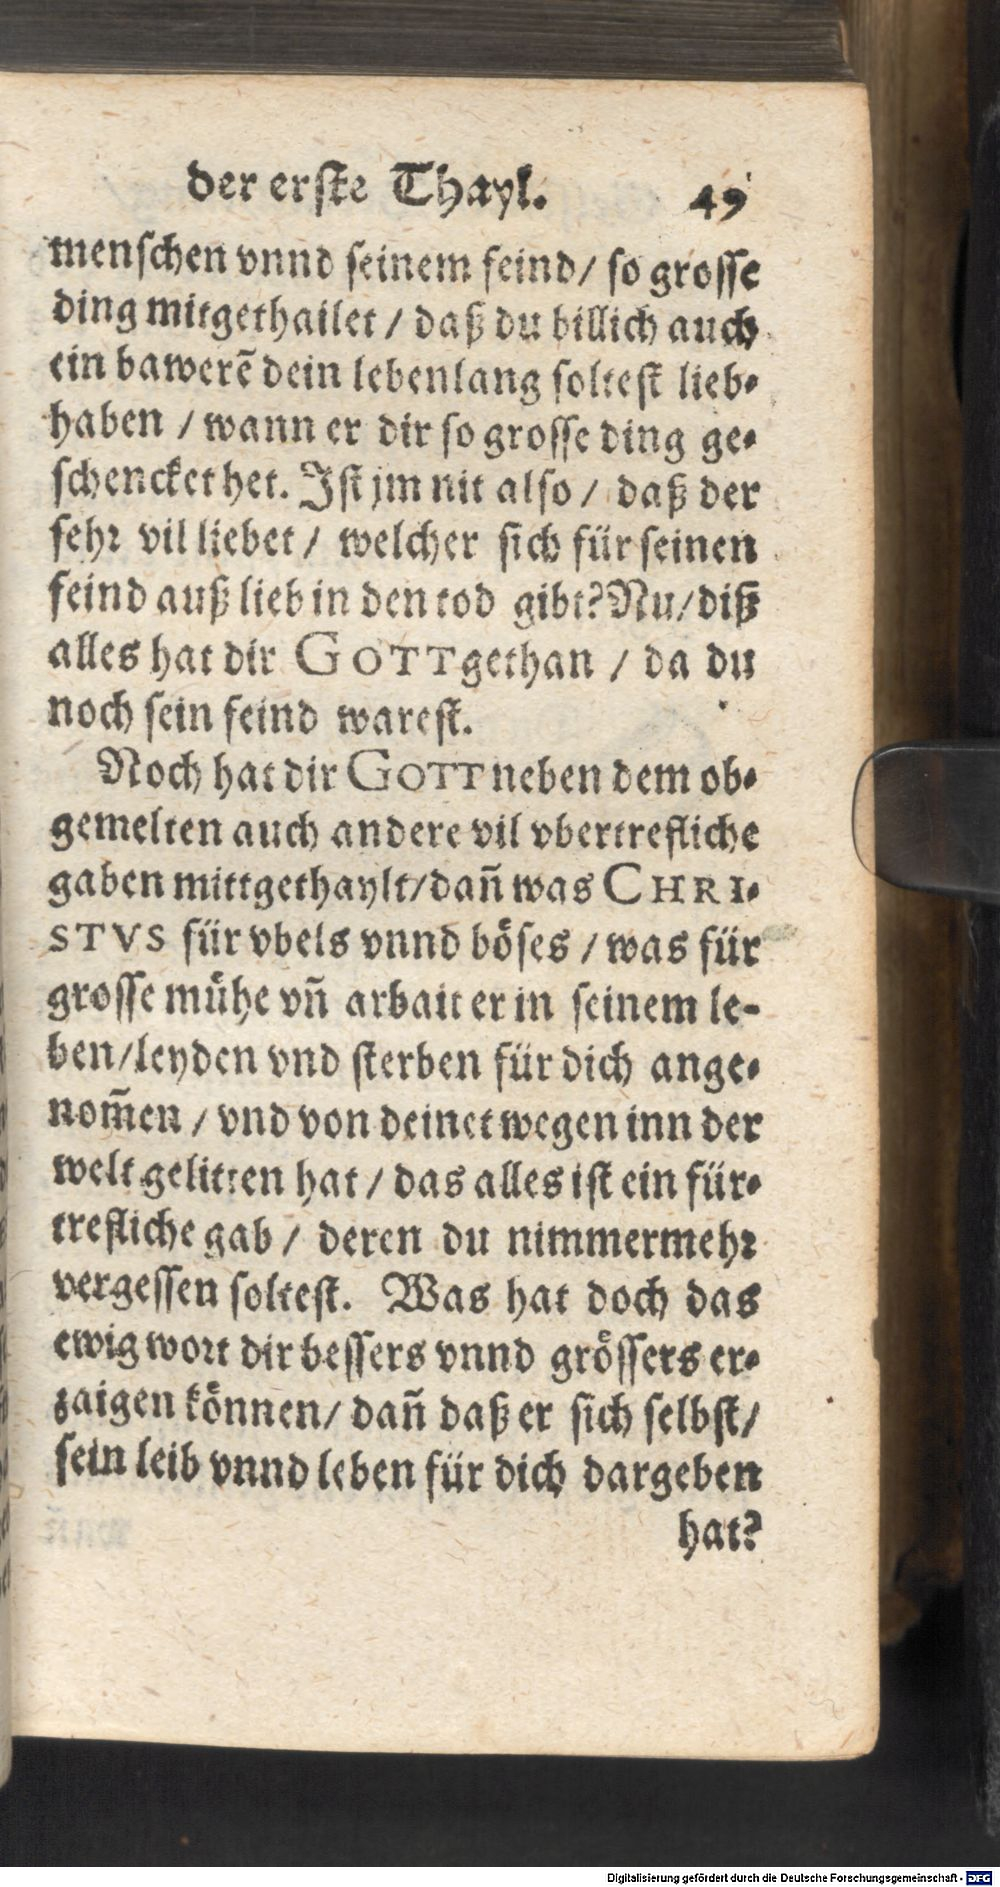 der erste Thayl. 49
menschen vnnd seinem feind/ so grosse
ding mitgethailet / daß du billich auch
ein bawerẽ dein lebenlang soltest lieb-
haben / wann er dir so grosse ding ge-
schencket het. Ist jm nit also / daß der
sehr vil liebet / welcher sich für seinen
feind auß lieb in den tod gibt? Nu/ diß
alles hat dir GOTT gethan / da du
noch sein feind warest.
Noch hat dir GOTT neben dem ob-
gemelten auch andere vil vbertrefliche
gaben mittgethaylt/ dañ was CHRI-
STVS für vbels vnnd böses / was für
grosse mühe vñ arbait er in seinem le-
ben/ leyden vnd sterben für dich ange-
nom̃en / vnd von deinet wegen inn der
welt gelitten hat / das alles ist ein für-
trefliche gab / deren du nimmermehr
vergessen soltest. Was hat doch das
ewig wort dir bessers vnnd grössers er-
zaigen können/ dañ daß er sich selbst/
sein leib vnnd leben für dich dargeben
hat?
Digitalisierung gefördert durch die Deutsche Forschungsgemeinschaft - DFG